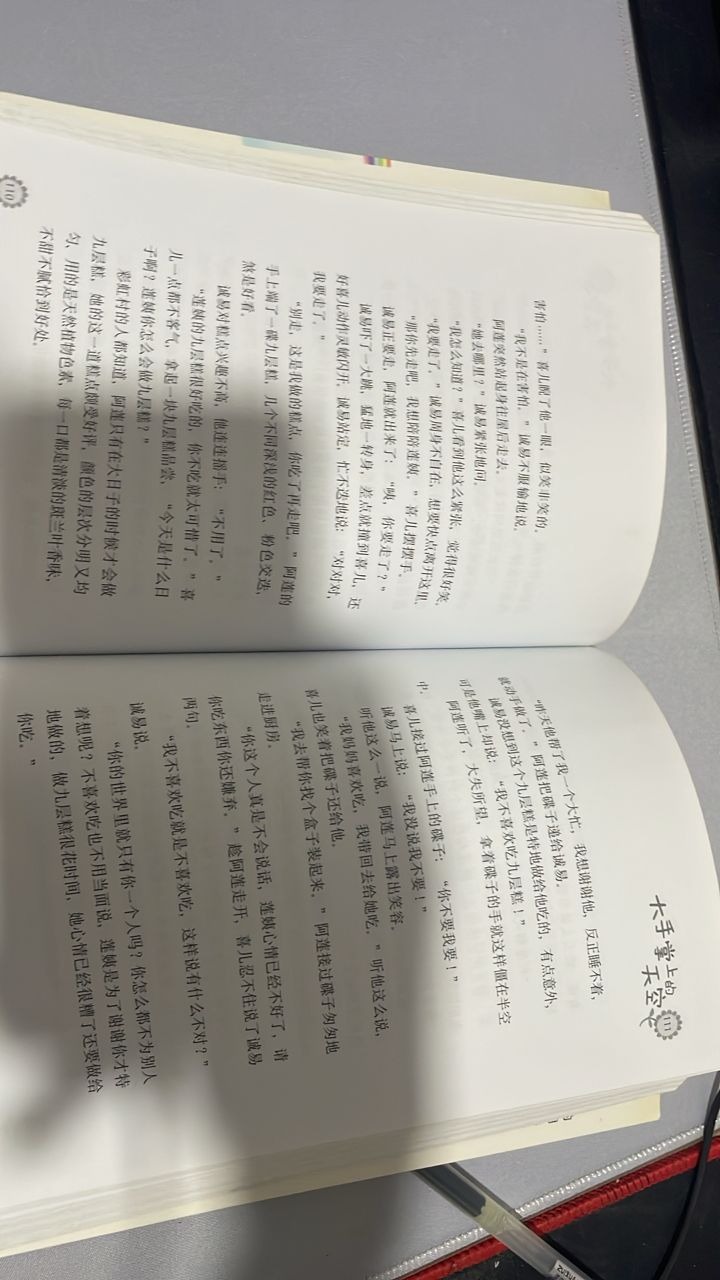 害怕……”喜儿睨了他一眼，似笑非笑的。
“我不是在害怕。”诚易不服输地说。
阿莲突然站起身往屋后走去。
“她去哪里？”诚易紧张地问。
“我怎么知道？”喜儿看到他这么紧张，觉得很好笑。
“我要走了。”诚易周身不自在，想要快点离开这里。
“那你先走吧，我想陪陪莲姨。”喜儿摆摆手。
诚易正要走，阿莲就出来了：“咦，你要走了？”
诚易吓了一大跳，猛地一转身，差点就撞到喜儿，还
好喜儿动作灵敏闪开，诚易站定，忙不迭地说：“对对对，
我要走了。”
“别走，这是我做的糕点，你吃了再走吧。”阿莲的
手上端了一碟九层糕，几个不同深浅的红色、粉色交迭，
煞是好看。
诚易对糕点兴趣不高，他连连摇手：“不用了。”
“莲姨的九层糕很好吃的，你不吃就太可惜了。”喜
儿一点都不客气，拿起一块九层糕品尝，“今天是什么日
子啊？莲姨你怎么会做九层糕？”
彩虹村的人都知道，阿莲只有在大日子的时候才会做
九层糕，她的这一道糕点颇受好评，颜色的层次分明又均
匀，用的是天然植物色素，每一口都是清淡的斑兰叶香味，
不甜不腻恰到好处。
110
大手掌上的
天空
111
“昨天他帮了我一个大忙，我想谢谢他，反正睡不着，
就动手做了。”阿莲把碟子递给诚易。
诚易没想到这个九层糕是特地做给他吃的，有点意外，
可是他嘴上却说：“我不喜欢吃九层糕！”
阿莲听了，大失所望，拿着碟子的手就这样僵在半空
中。
喜儿接过阿莲手上的碟子：“你不要我要！”
诚易马上说：“我没说我不要！”
听他这么一说，阿莲马上露出笑容。
“我妈妈喜欢吃，我带回去给她吃。”听他这么说，
喜儿也笑着把碟子还给他。
“我去帮你找个盒子装起来。”阿莲接过碟子匆匆地
走进厨房。
“你这个人真是不会说话，莲姨心情已经不好了，请
你吃东西你还嫌弃。”趁阿莲走开，喜儿忍不住说了诚易
两句。
“我不喜欢吃就是不喜欢吃，这样说有什么不对？”
诚易说。
“你的世界里就只有你一个人吗？你怎么都不为别人
着想呢？不喜欢吃也不用当面说，莲姨是为了谢谢你才特
地做的，做九层糕很花时间，她心情已经很糟了还要做给
你吃。”